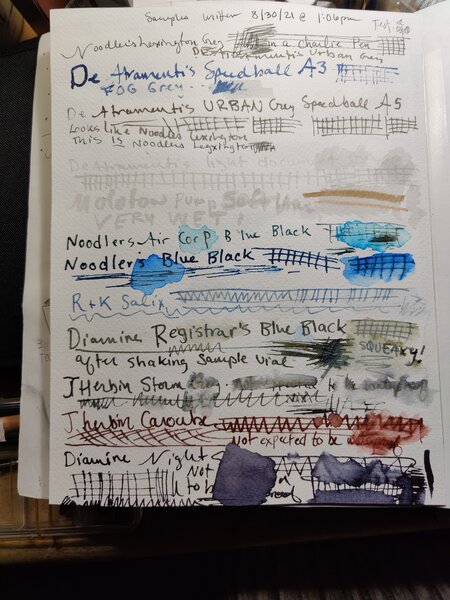 Samples written 8/30/21 @ 1:06pm
Noodler's Lexington Grey in a Charlie Pen
De Atramentis Urban Grey
De Atramentis Speedball A3
FOG Grey
De Atramentis URBAN Grey Speedball A5
Looks like Noodlers Lexington
This IS Noodlers Lexington
De Atramentis
Molotow Pump Softliner
VERY WET!
Noodlers Air Corp Blue Black
Noodler's Blue Black
R+K Salix
Diamine Registrar's Blue Black
SQUEAKY!
after shaking sample vial
J Herbin Stormy Grey - Not expected to be waterproof
J herbin Caroube
Not expected to be
Diamine Night
Not
to b